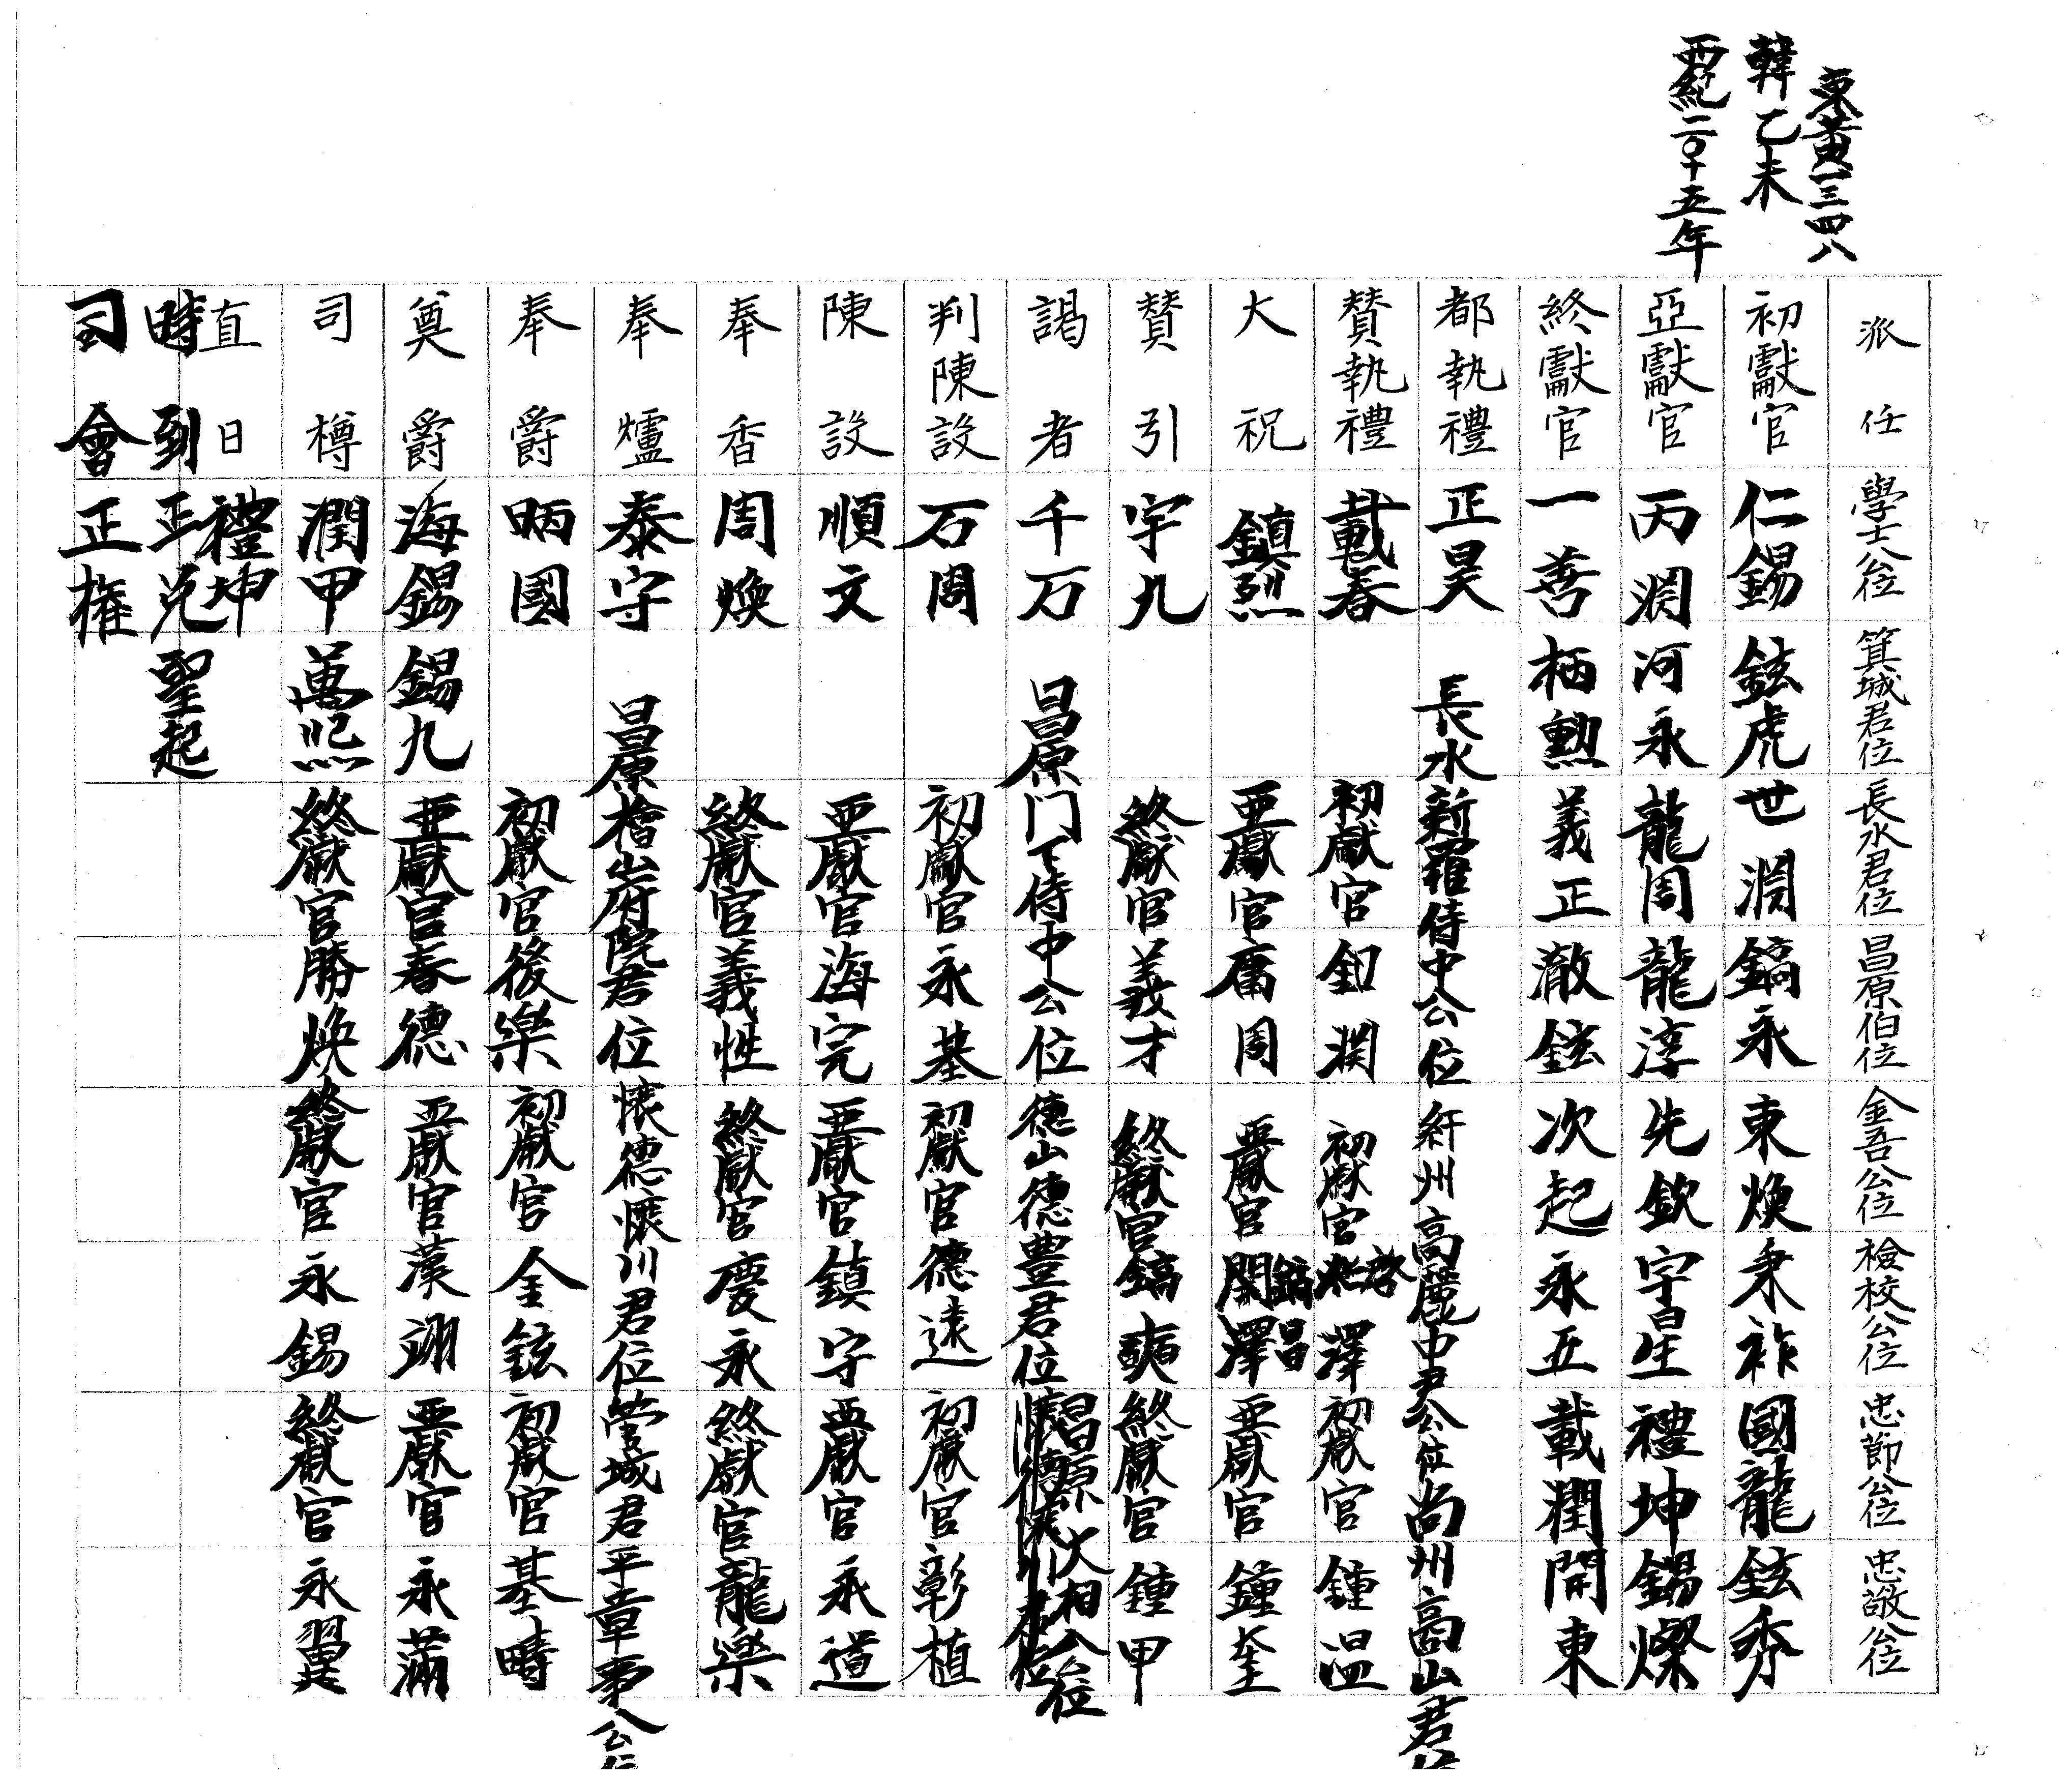 東黃一三四八
韓乙未
西紀二0十五年
派任 學士公位 箕城君位 長水君位 昌原伯位 金吾公位 檢校公位 忠節公位 忠敬公位
初獻官 仁錫 鉉虎 世淵 鎬永 東煥 秉祚 國龍 鉉秀
亞獻官 丙淵 河永 龍周 龍淳 先欽 宇星 禮坤 錫燦
終獻官 一善 柄勳 義正 澈鉉 次起 永五 載潤 開東
都執禮 正昊 長水 新羅侍中公位 紆州 高麗中尹公位 尚州高山君位
贊執禮 載春 初獻官 釦淵 初獻官 澤 初獻官 鍾温
大祝 鎭烈 亞獻官 周 亞獻官 鎬昌 亞獻官 鍾奎
贊引 宇九 終獻官 義才 終獻官 鎬奭 終獻官 鍾甲
謁者 千万 昌原 门下侍中公位 德山德豊君位 昌原大相公位
判陳設 石周 初獻官 永基 初獻官 德遠 初獻官 彰植
陳設 順文 亞獻官 海完 亞獻官 鎮守 亞獻官 永道
奉香 周煥 終獻官 義性 終獻官 慶永 終獻官 龍樂
奉爐 泰守 昌原 檜山府院君位 懷德懷川君位 管城君 平章事公位
奉爵 昞國 初獻官 後樂 初獻官 金鉉 初獻官 基疇
奠爵 海錫 錫九 亞獻官 春德 亞獻官 漢翊 亞獻官 永滿
司樽 潤甲 萬熙 終獻官 勝煥 終獻官 永錫 終獻官 永翼
直日 禮坤
時到 正兌 聖起
司會 正權